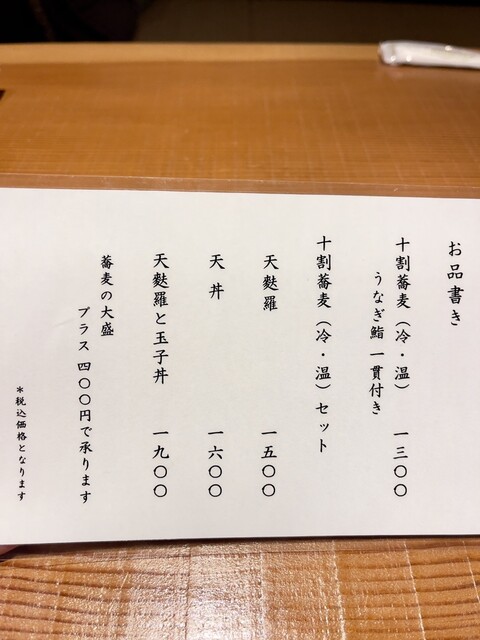 お品書き
十割蕎麦（冷・温） 一三〇〇
うなぎ鮨 一貫付き
十割蕎麦（冷・温）セット
天麩羅 一五〇〇
天丼 一六〇〇
天麩羅と玉子丼 一九〇〇
蕎麦の大盛
プラス 四〇〇円で承ります
＊税込価格となります